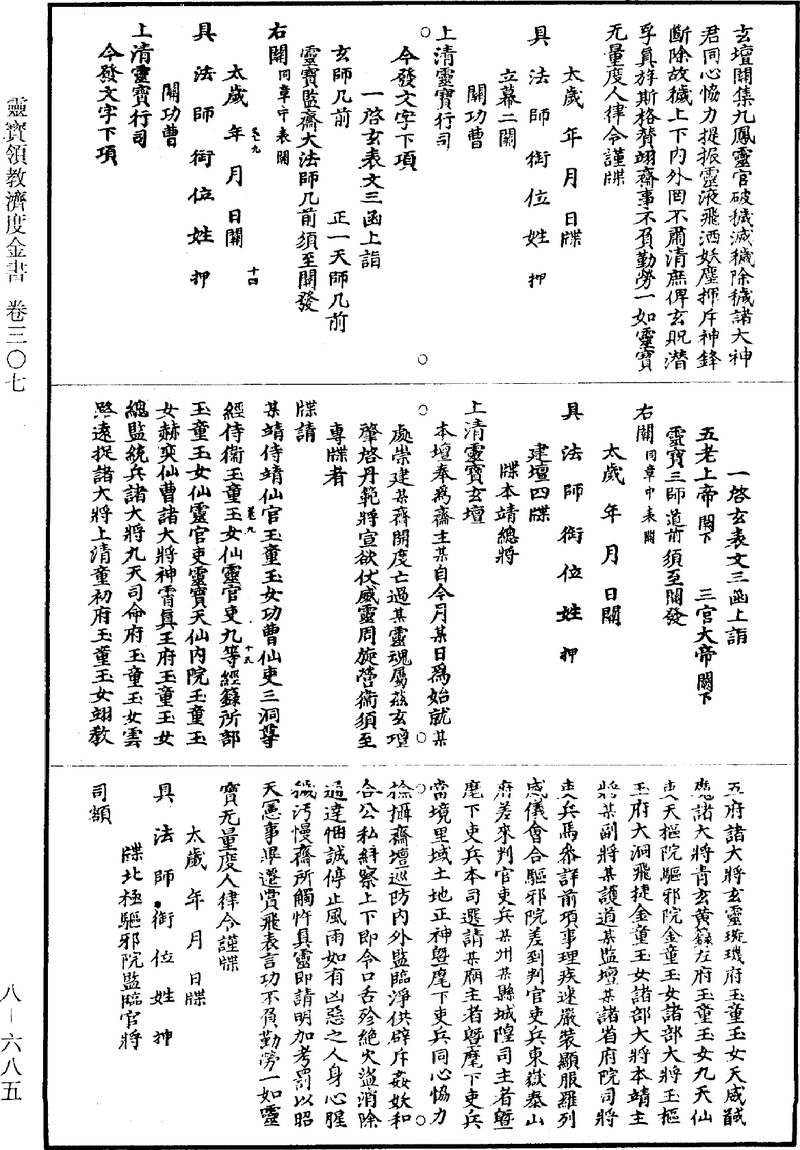 玄壇關集九鳳靈官破穢滅穢除穢諸大神
君同心恊力提振靈液飛洒妖塵揮斥神鋒
斷除故穢上下內外罔不肅清庶俾玄貺潛
孚真斿斯格賛翊齋事不負勤勞一如靈寶
无量度人律令謹牒
太歲　年　月　日牒
具　法　師　銜　位　姓　押
立幕二關
關功曹
上清靈寶行司
今發文字下項
一啓玄表文三函上詣
玄師几前　正一天師几前
靈寶監齋大法師几前須至關發
右關同章中表關
太歲　年　月　日關
卷九　十四
具　法　師　銜　位　姓　押
關功曹
上清靈寶行司
今發文字下項
一啓玄表文三函上詣
五老上帝闕下　三官大帝闕下
靈寶三師道前須至關發
右關同章中表關
太歲　年　月　日關
具　法　師　銜　位　姓　押
建壇四牒
牒本靖總將
上清靈寶玄壇
本壇奉為齋主某自今月某日為始就某
處崇建某齋開度亡過某靈魂屬茲玄壇
肇啓丹範將宣欲仗威靈周旋營衛須至
專牒者
牒請
某靖侍靖仙官玉童玉女功曹仙吏三洞尊
經侍衛玉童玉女仙靈官吏九等經籙所部
卷九　十五
玉童玉女仙靈官吏靈寶天仙內院玉童玉
女赫奕仙曹諸大將神霄真王府玉童玉女
總監統兵諸大將九天司命府玉童玉女雲
路遠捉諸大將上清童初府玉童玉女翊教
五府諸大將玄靈璇璣府玉童玉女天威猷
應諸大將青玄黃籙左府玉童玉女九天仙
吏天樞院驅邪院金童玉女諸部大將玉樞
玉府大洞飛捷金童玉女諸部大將本靖主
將某副將某護道某監壇某諸省府院司將
吏兵馬叅詳前項事理疾速嚴裝顯服羅列
威儀會合驅邪院差到判官吏兵東嶽泰山
府差來判官吏兵某州某縣城隍司主者曁
麾下吏兵本司選請某廟主者曁麾下吏兵
當境里域土地正神曁麾下吏兵同心恊力
拾攝齋壇巡防內外監臨淨供辟斥姦妖和
合公私糾察上下即令口舌殄絕火盜消除
通達悃誠停止風雨如有凶惡之人身心腥
穢污慢齋所觸忤真靈即請明加考罰以昭
天憲事畢還賞飛表言功不負勤勞一如靈
寶无量度人律令謹牒
太歲　年　月　日牒
具　法　師　銜　位　姓　押
牒北極驅邪院監臨官將
司額
靈寶領教濟度金書　卷三〇七
八—六八五